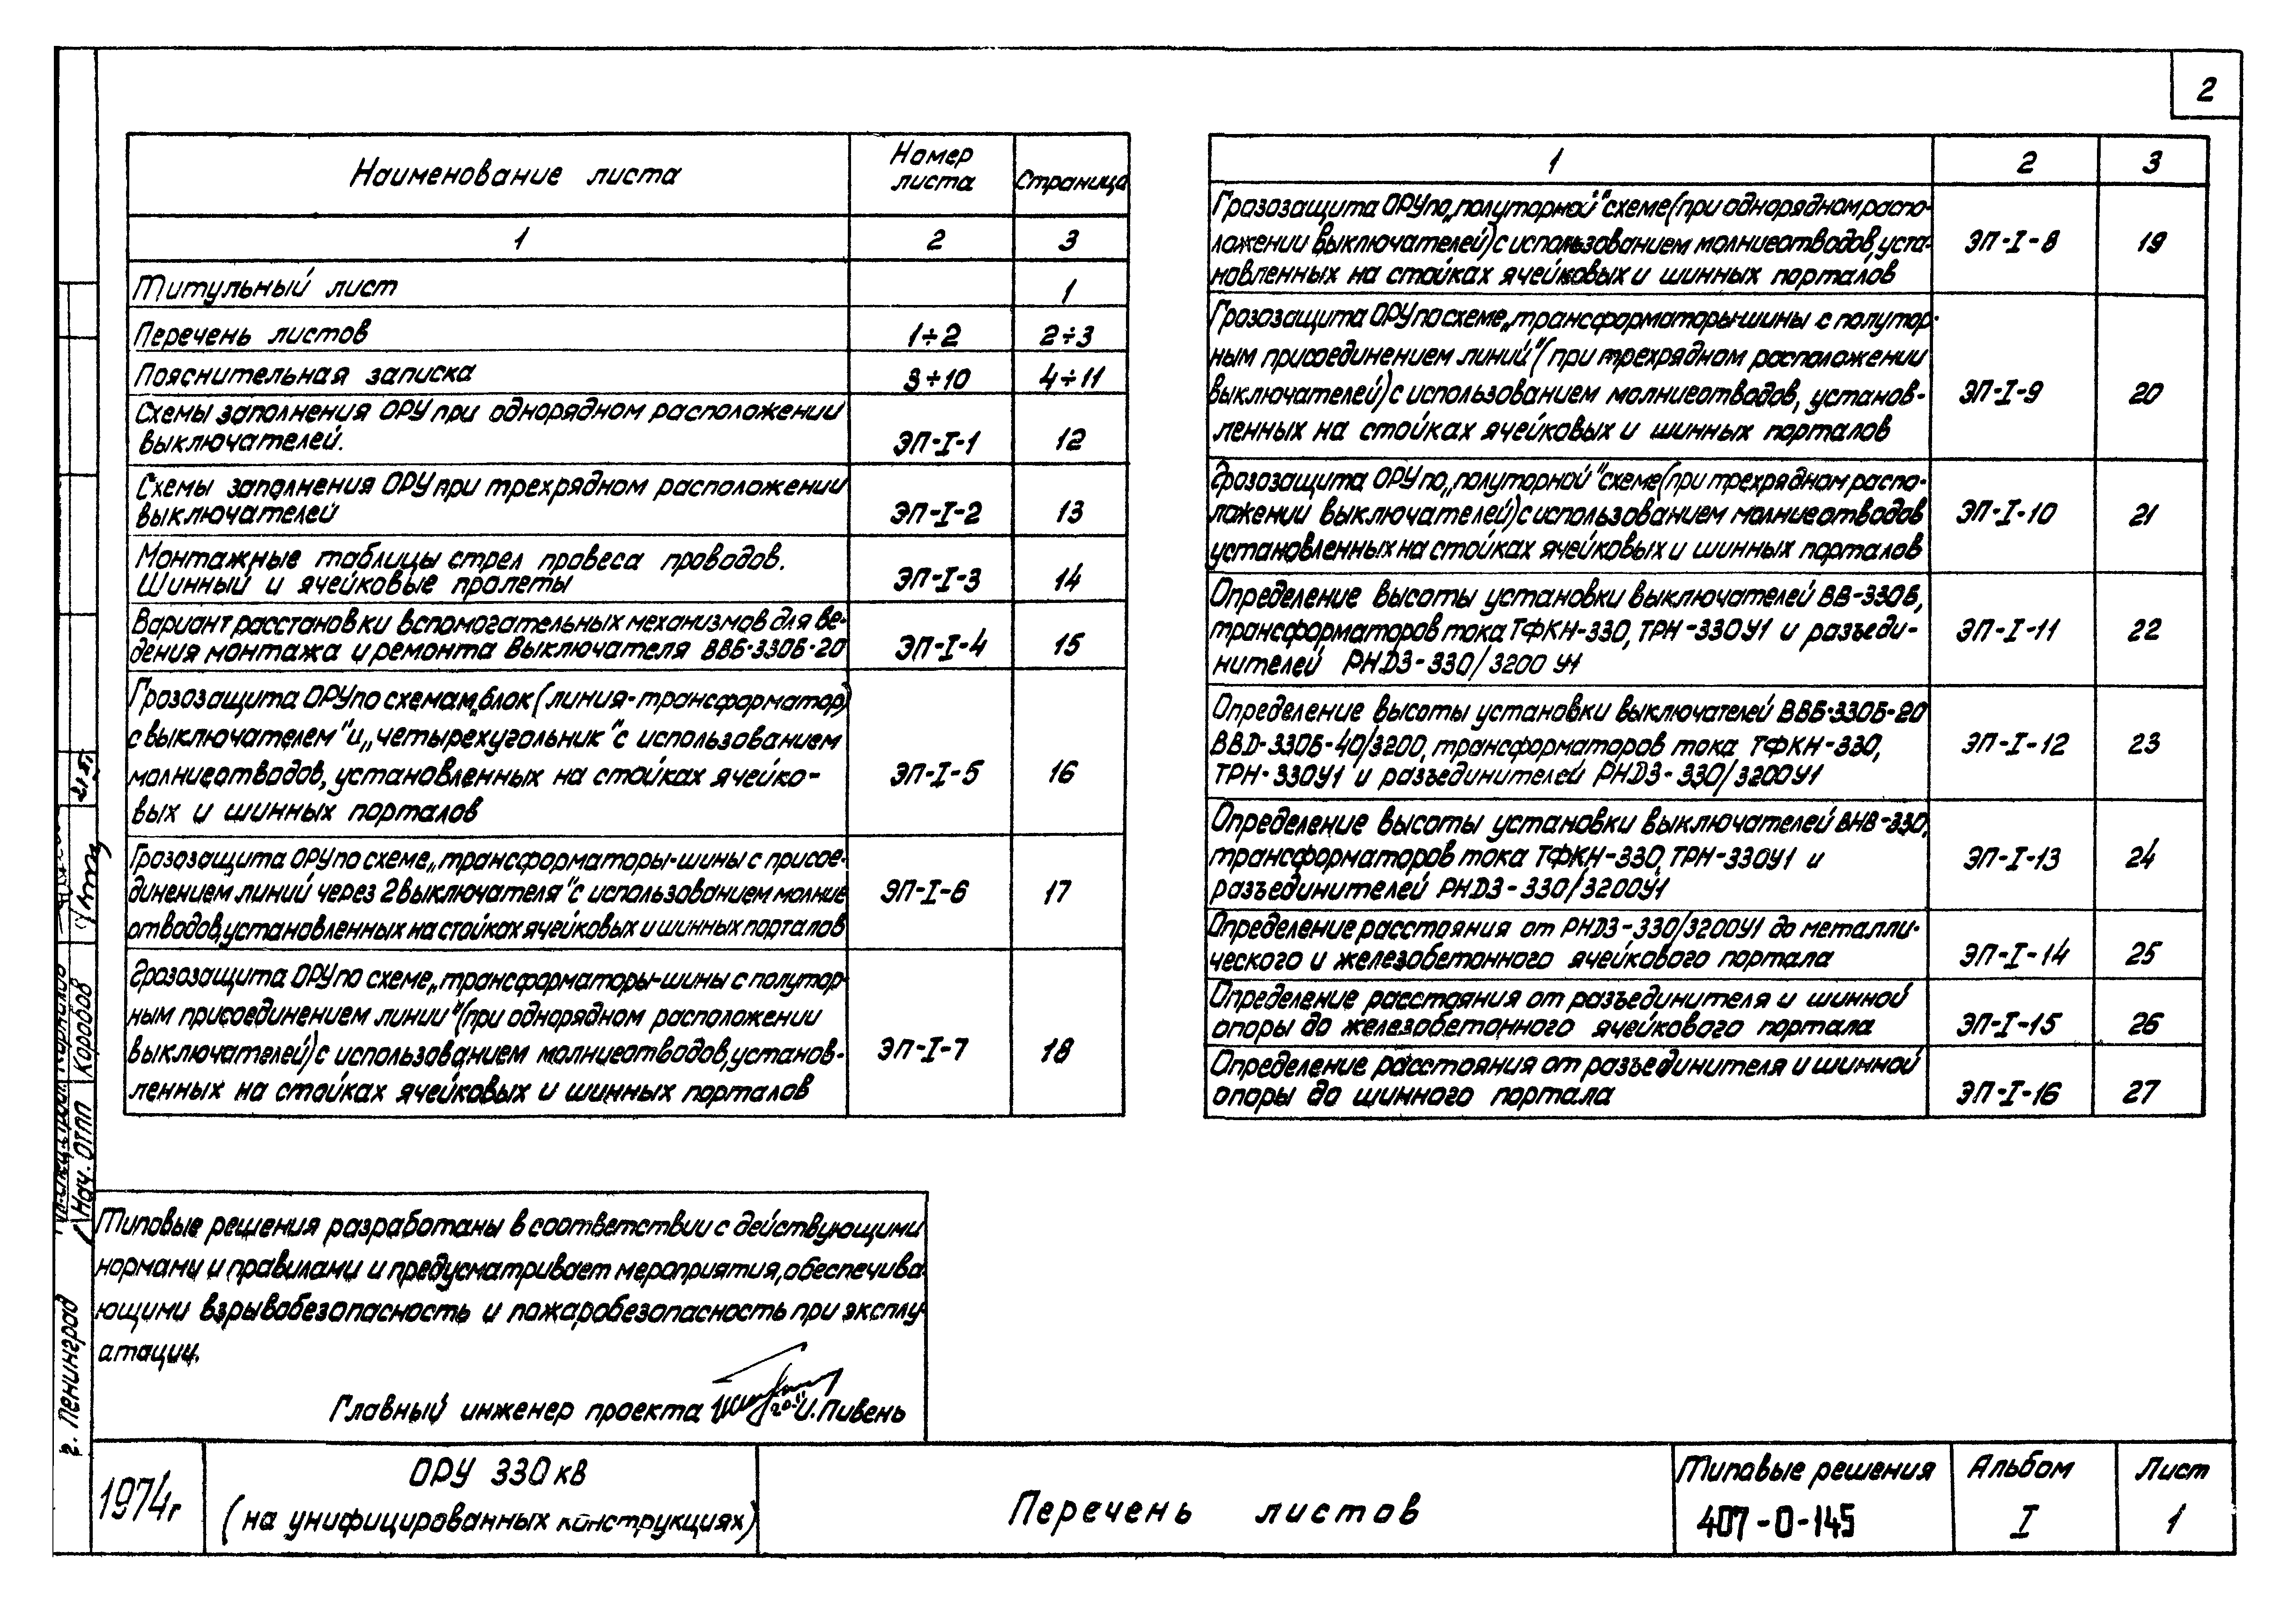 2
Наименование листа
Номер
листа
Страница
1 2 3
Титульный лист 1
Перечень листов 1÷2 2÷3
Пояснительная записка 3÷10 4÷11
Схемы заполнения ОРУ при однорядном расположении
выключателей. ЭП-I-1 12
Схемы заполнения ОРУ при трехрядном расположении
выключателей ЭП-I-2 13
Монтажные таблицы стрел провеса проводов.
Шинный и ячейковые пролеты ЭП-I-3 14
Вариант расстановки вспомогательных механизмов для ве-
дения монтажа и ремонта выключателя ВВБ-330Б-20 ЭП-I-4 15
Грозозащита ОРУ по схемам „блок (линия-трансформатор)
с выключателем" и „четырехугольник" с использованием
молниеотводов, установленных на стойках ячейко- ЭП-I-5 16
вых и шинных порталов
Грозозащита ОРУ по схеме „трансформаторы-шины с присое-
динением линий через 2 выключателя" с использованием молние ЭП-I-6 17
отводов, установленных на стойках ячейковых и шинных порталов
Грозозащита ОРУ по схеме „трансформаторы-шины с полутор-
ным присоединением линии" (при однорядном расположении
выключателей) с использованием молниеотводов, установ- ЭП-I-7 18
ленных на стойках ячейковых и шинных порталов
1 2 3
Грозозащита ОРУ по „полуторной" схеме (при однорядном распо-
ложении выключателей) с использованием молниеотводов, уста- ЭП-I-8 19
новленных на стойках ячейковых и шинных порталов
Грозозащита ОРУ по схеме „трансформаторы-шины с полутор-
ным присоединением линий" (при трехрядном расположении
выключателей) с использованием молниеотводов, установ- ЭП-I-9 20
ленных на стойках ячейковых и шинных порталов
Грозозащита ОРУ по „полуторной" схеме (при трехрядном распо-
ложении выключателей) с использованием молниеотводов ЭП-I-10 21
установленных на стойках ячейковых и шинных порталов
Определение высоты установки выключателей ВВ-330Б,
трансформаторов тока ТФКН-330, ТРН-330У1 и разъеди- ЭП-I-11 22
нителей РНДЗ-330/3200 У1
Определение высоты установки выключателей ВВБ-330Б-20
ВВД-330Б-40/3200, трансформаторов тока ТФКН-330, ЭП-I-12 23
ТРН-330У1 и разъединителей РНДЗ-330/3200У1
Определение высоты установки выключателей ВНВ-330,
трансформаторов тока ТФКН-330, ТРН-330У1 и ЭП-I-13 24
разъединителей РНДЗ-330/3200У1
Определение расстояния от РНДЗ-330/3200У1 до металли-
ческого и железобетонного ячейкового портала ЭП-I-14 25
Определение расстояния от разъединителя и шинной
опоры до железобетонного ячейкового портала ЭП-I-15 26
Определение расстояния от разъединителя и шинной
опоры до шинного портала ЭП-I-16 27
Типовые решения разработаны в соответствии с действующими
нормами и правилами и предусматривает мероприятия, обеспечива-
ющими взрывобезопасность и пожаробезопасность при эксплу-
атации.
Главный инженер проекта И. Пивень
Нач. ОТПП Коробов
г. Ленинград
1974г
ОРУ 330 кв
(на унифицированных конструкциях)
Перечень листов
Типовые решения
407-0-145
Альбом
I
Лист
1